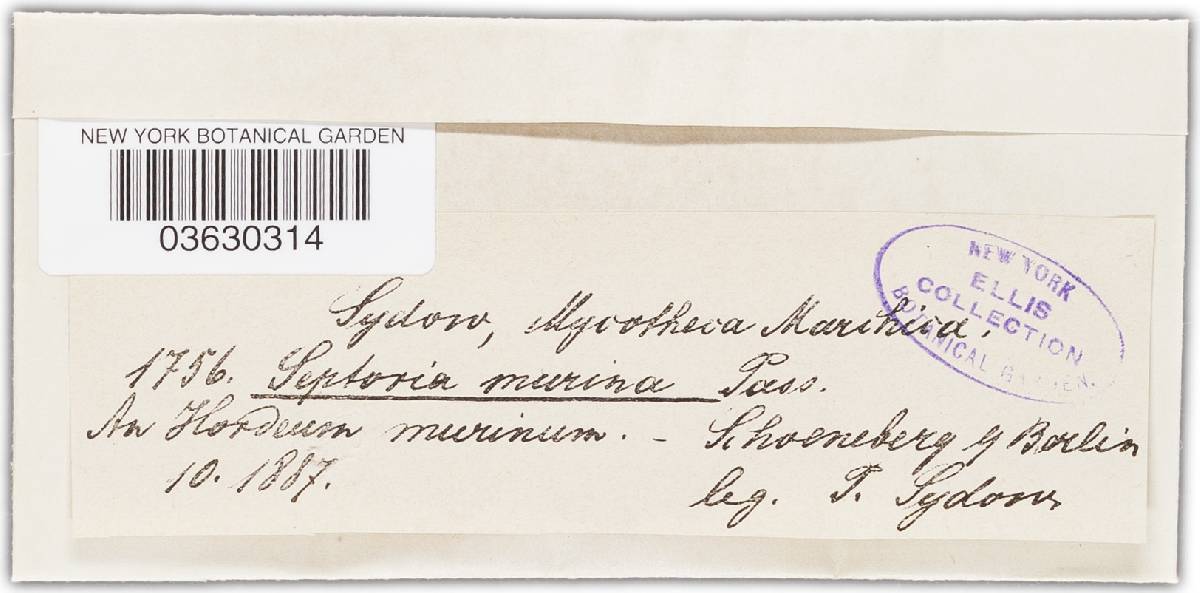 NEW YORK BOTANICAL GARDEN
03630314
NEW YORK
ELLIS
COLLECTION
BOTANICAL GARDEN.
Sydow, Mycotheca Marchica,
1756. Septoria murina Pass.
An Hordeum murinum. – Schoeneberg b/ Berlin
10. 1887.
leg. P. Sydow